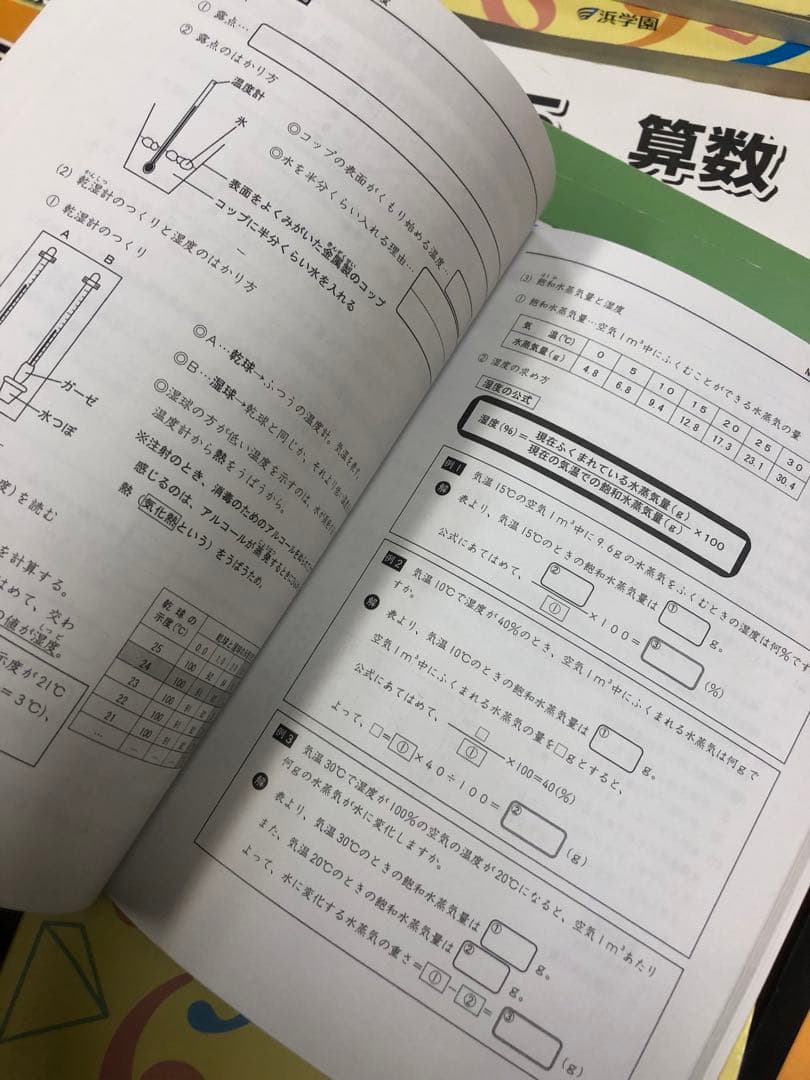 浜学園
算数
① 露点…
② 露点のはかり方
温度計
氷
◎コップの表面がくもり始める温度…
◎水を半分くらい入れる理由…
表面をよくみがいた金属製のコップ
コップに半分くらい水を入れる
(2) 乾湿計のつくりと湿度のはかり方
かんしつ
① 乾湿計のつくり
A
B
ガーゼ
水つぼ
◎A…乾球→ふつうの温度計。気温を表す。
◎B…湿球→乾球と同じか、それより低い
◎湿球の方が低い温度を示すのは、水が
温度計から熱をうばうから。
※注射のとき、消毒のためのアルコールを
感じるのは、アルコールが蒸発するときに
熱(気化熱という)をうばうため。
を読む
を計算する。
はめて、交わ
値が湿度。
しつど
示度が21℃
=3℃)、
乾球の
示度(℃)
0.0
1.0
25
100
92
24
100
91
23
100
91
22
100
91
21
100
91
…
(3) 飽和水蒸気量と湿度
ほうわ
① 飽和水蒸気量…空気1m³中にふくむことができる水蒸気の量
気 温(℃) 0 5 10 15 20 25 30
水蒸気量(g) 4.8 6.8 9.4 12.8 17.3 23.1 30.4
② 湿度の求め方
湿度の公式
湿度(%)=現在ふくまれている水蒸気量(g)
現在の気温での飽和水蒸気量(g)
×100
例1 気温15℃の空気1m³中に9.6gの水蒸気をふくむときの湿度は何%です
か。
解 表より、気温15℃のときの飽和水蒸気量は ① g。
公式にあてはめて、 ②
①
×100= ③ (%)
例2 気温10℃で湿度が40%のとき、空気1m³中にふくまれる水蒸気は何gで
すか。
解 表より、気温10℃のときの飽和水蒸気量は ① g。
空気1m³中にふくまれる水蒸気の量を□gとすると、
公式にあてはめて、 □
①
×100=40(%)
よって、□=①×40÷100= ② (g)
例3 気温30℃で湿度が100%の空気の温度が20℃になると、空気1m³あたり
何gの水蒸気が水に変化しますか。
解 表より、気温30℃のときの飽和水蒸気量は ① g。
また、気温20℃のときの飽和水蒸気量は ② g。
よって、水に変化する水蒸気の重さ=①-②= ③ (g)